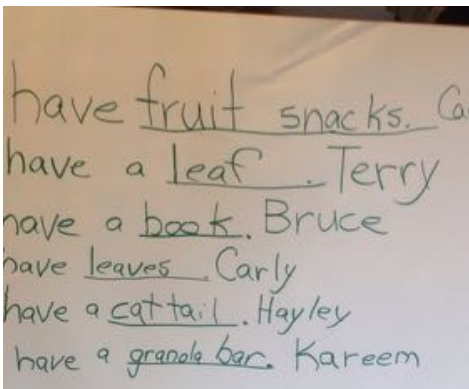 have fruit snacks. Ca
have a leaf. Terry
have a book. Bruce
have leaves. Carly
have a cattail. Hayley
have a granola bar. Kareem